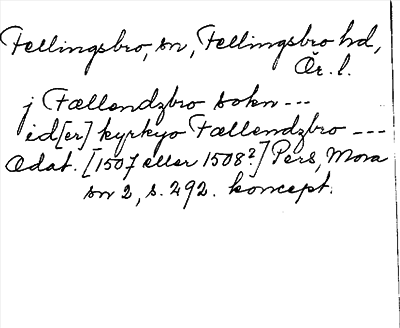 Fellingsbro, sn, Fellingsbro hd,
Ör. l.
j Fællendzbro sokn ---
id[er] kyrkyo Fællendzbro ---
Odat. [1507 eller 1508?] Pers, Mora
sn 2, s. 292. koncept.